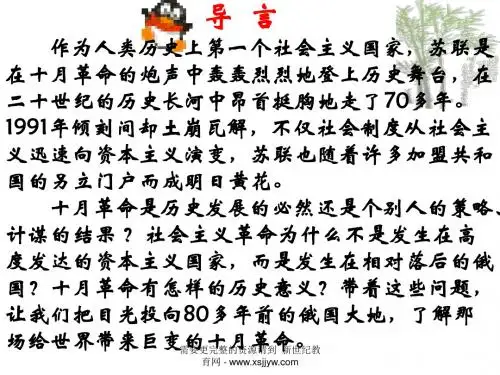 导 言
作为人类历史上第一个社会主义国家，苏联是
在十月革命的炮声中轰轰烈烈地登上历史舞台，在
二十世纪的历史长河中昂首挺胸地走了70多年。
1991年倾刻间却土崩瓦解，不仅社会制度从社会主
义迅速向资本主义演变，苏联也随着许多加盟共和
国的另立门户而成明日黄花。
十月革命是历史发展的必然还是个别人的策略、
计谋的结果？社会主义革命为什么不是发生在高
度发达的资本主义国家，而是发生在相对落后的俄
国？十月革命有怎样的历史意义？带着这些问题，
让我们把目光投向80多年前的俄国大地，了解那
场给世界带来巨变的十月革命。
需要更完整的资源请到 新世纪教
育网 - www.xsjjyw.com